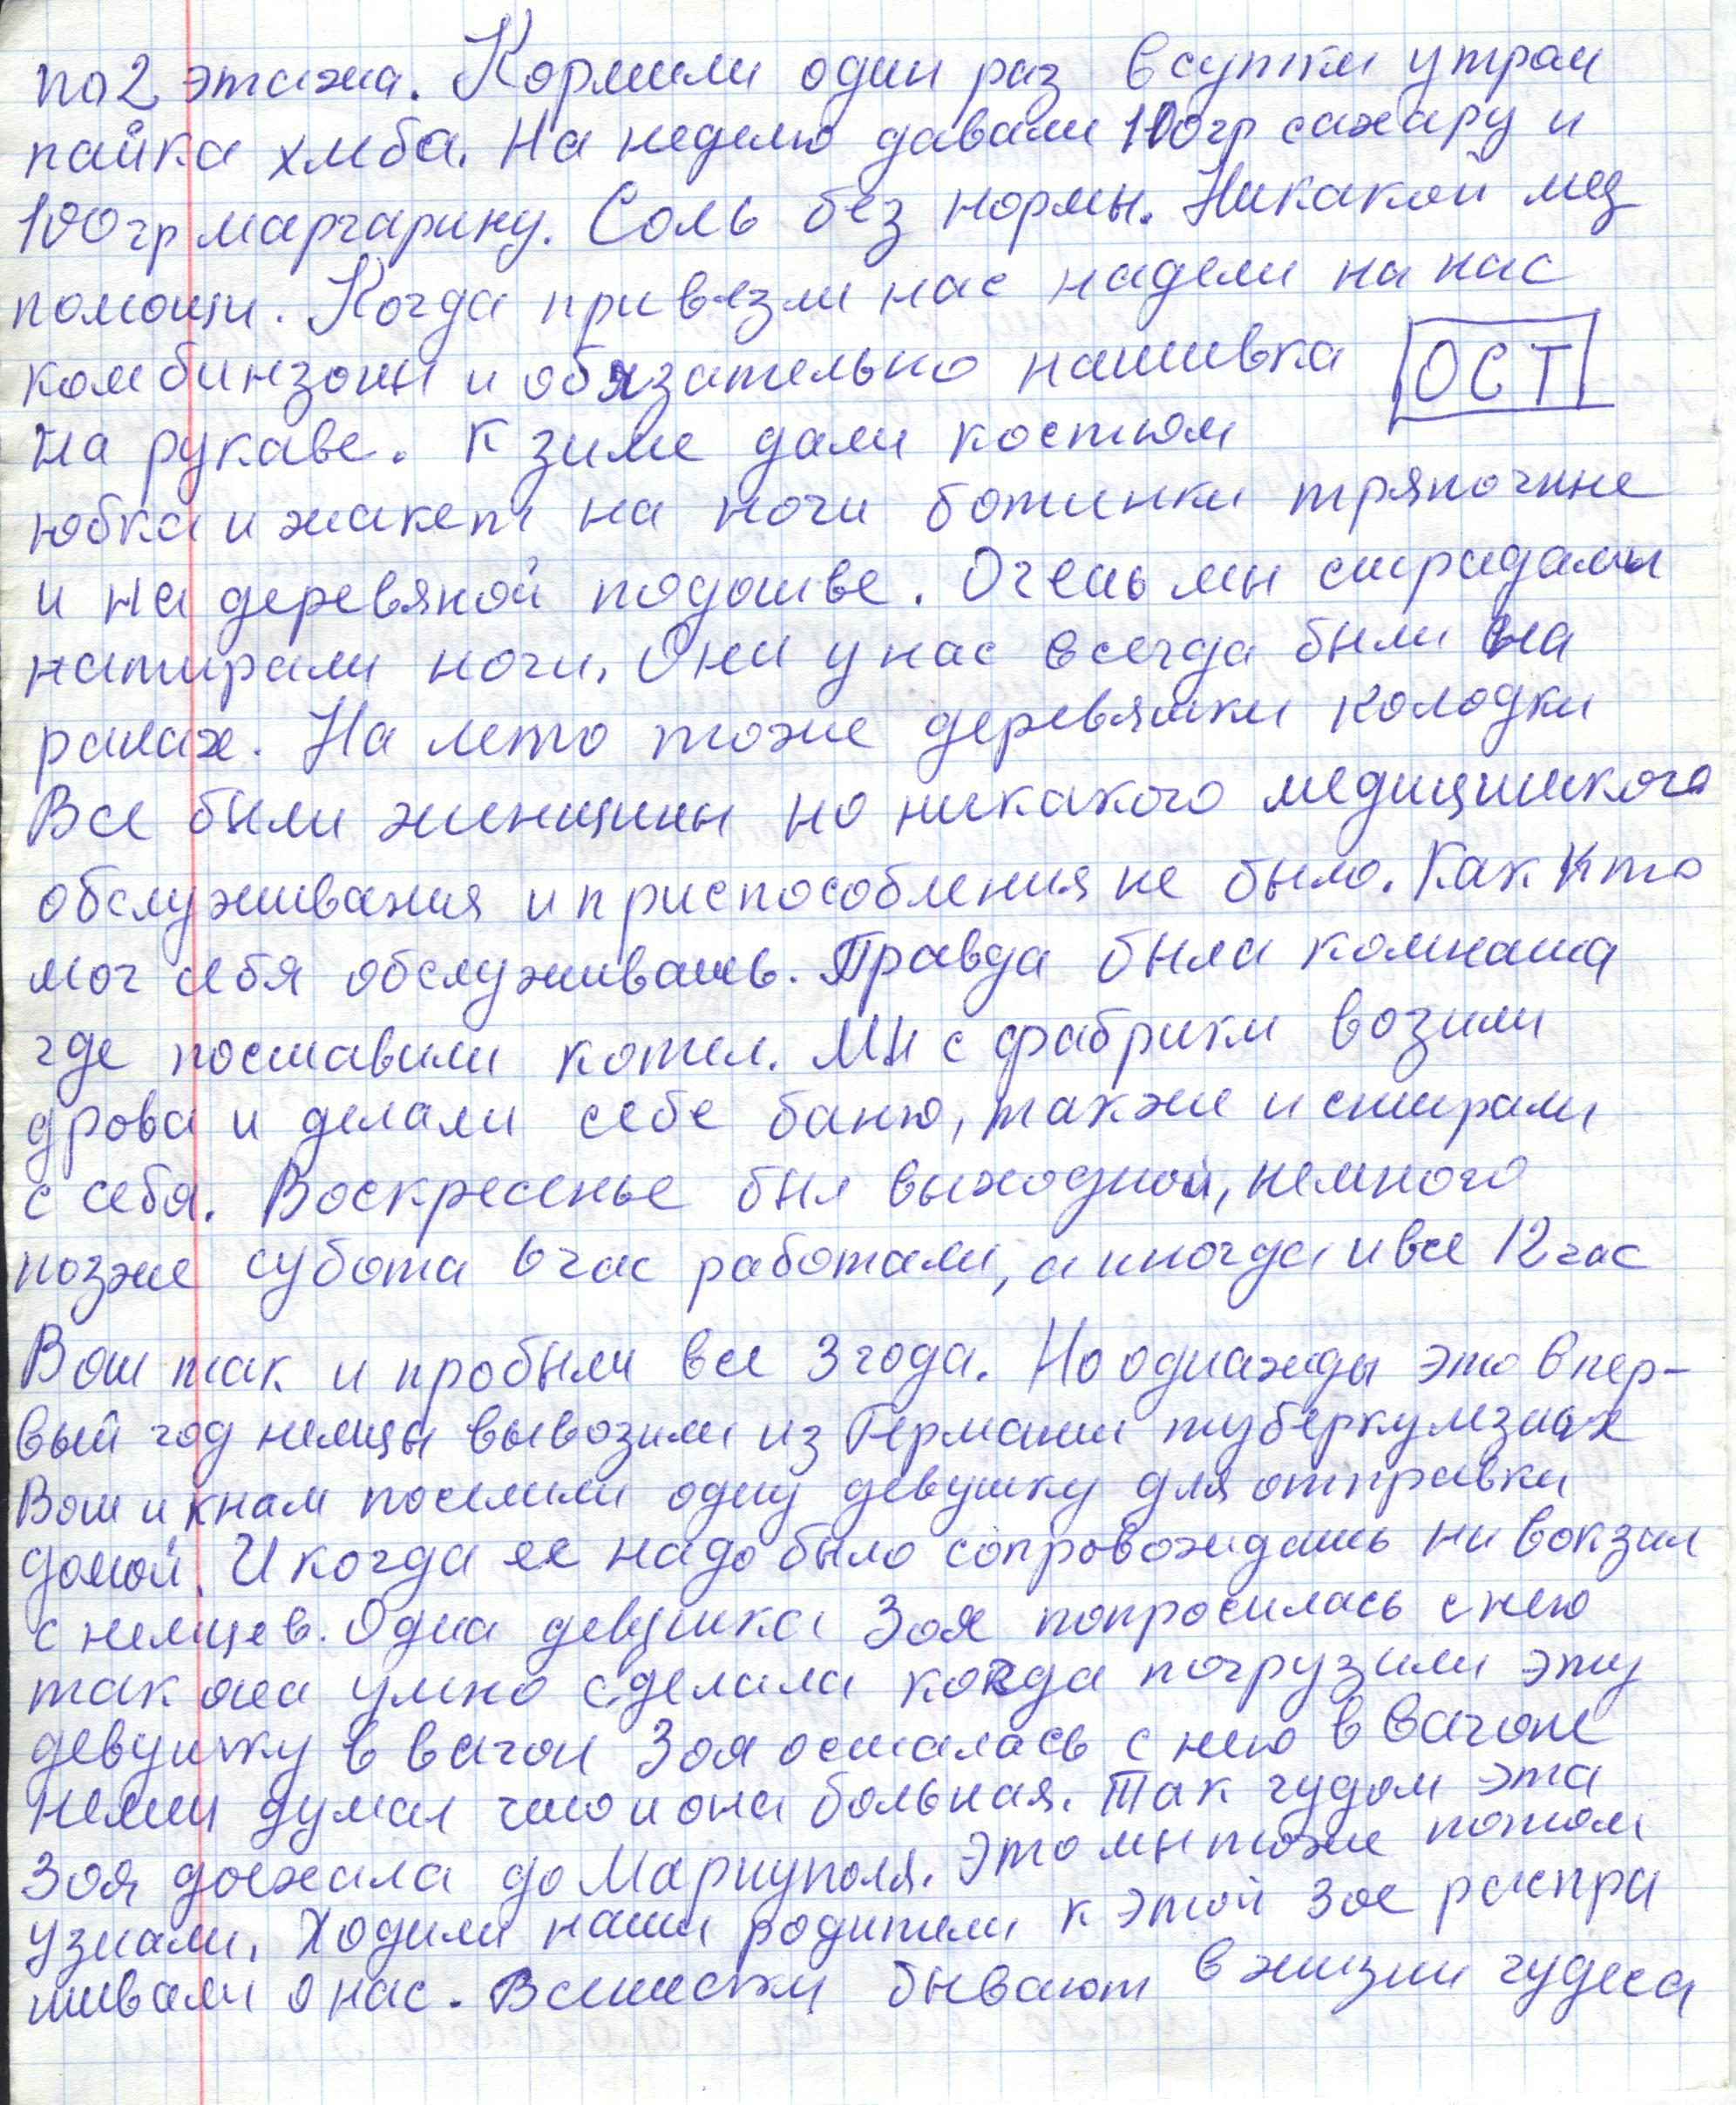 по 2 этажа. Кормили один раз в сутки утром
пайка хлеба. На неделю давали 100 гр сахару и
100 гр маргарину. Соль без нормы. Никакой мед
помощи. Когда привезли нас надели на нас
комбинзоны и обязательно нашивка ОСТ
на рукаве. К зиме дали костюм
юбка и жакет на ночи ботинки тряпочные
и на деревяной подошве. Очень мы страдалы
натирали ночи. Они у нас всегда были на
ранах. На лето тоже деревяшки колодки
Все были женщины но никакого медицинского
обслуживания и приспособления не было. Как кто
мог себя обслуживать. Правда была комната
где поставили котел. Мы с фабрики возили
дрова и делали себе баню, также и стирали
с себя. Воскресенье был выходной, немного
позже субота 6 час работали, а иногда и все 12 час
Вот так и пробыли все 3 года. Но однажды это в пер-
вый год немцы вывозили из Германии туберкулезных
Вот и к нам поселили одну девушку для отправки
домой. И когда ее надо было сопровождать на вокзал
с немцев. Одна девушка Зоя попросилась с нею
так она умно сделала когда погрузили эту
девушку в вагон Зоя осталась с нею в вагоне
Немец думал что и она больная. Так чудом эта
Зоя доехала до Мариуполя. Это мы тоже потом
узнали. Ходили наши родители к этой Зое распра
шивали о нас. бывают в жизни чудеса